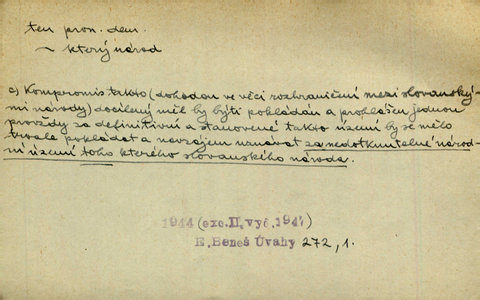 ten pron. dem.
~ který národ
c) Kompromis takto (dohodou ve věci rozhraničení mezi slovanský-
mi národy) docílený měl by býti pokládán a prohlášen jednou
provždy za definitivní a stanovené takto území by se mělo
trvale pokládat a navzájem uznávat za nedotknutelné národ-
ní území toho kterého slovanského národa.
1944 (exc. II. vyd. 1947)
E. Beneš Úvahy 272, 1.